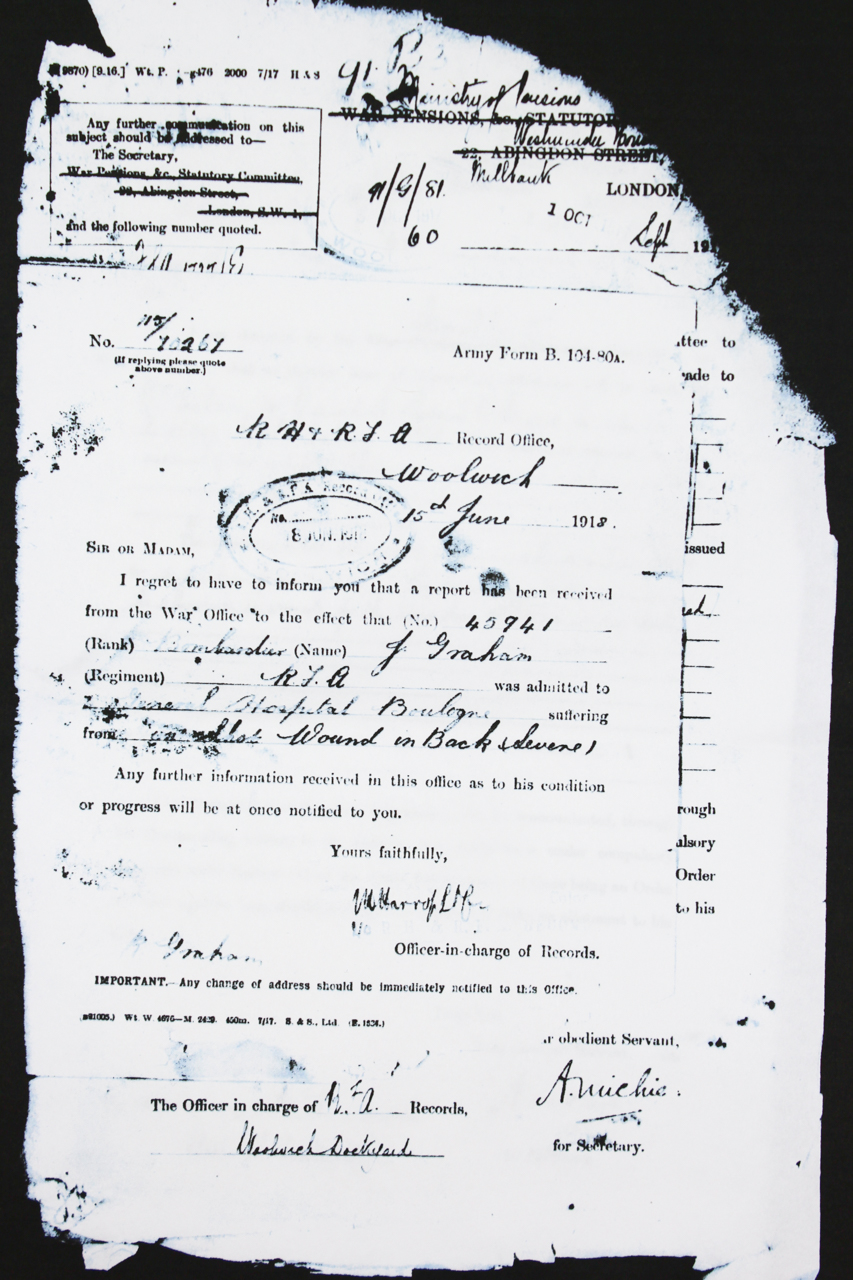 9870) [9.16.] Wt. P. 476 2000 7/17 H & S
91.
Ministry of Pensions
WAR PENSIONS, &c. STATUTOR
Westminster
22, ABINGDON STREET,
Millbank
LONDON,
91/G/81.
60
1 OCT
Sept 191
Any further communication on this
subject should be addressed to—
The Secretary,
War Pensions, &c., Statutory Committee,
22, Abingdon Street,
London, S.W. 1,
and the following number quoted.
ttee to
ade to
issued
rough
ulsory
Order
to his
No. 115/70267
(If replying please quote
above number.)
Army Form B. 104-80A.
R H & R F A Record Office,
Woolwich
15th June 1918.
No.
SIR OR MADAM,
I regret to have to inform you that a report has been received
from the War Office to the effect that (No.) 45941
(Rank) Bombardier (Name) J Graham
(Regiment) R F A was admitted to
General Hospital Boulogne suffering
from Wound in Back (Severe)
Any further information received in this office as to his condition
or progress will be at once notified to you.
Yours faithfully,
Officer-in-charge of Records.
Graham
IMPORTANT.—Any change of address should be immediately notified to this Office.
Wt W 4676—M. 2439. 450m. 7/17. S. & S., Ltd. (E. 1534.)
r obedient Servant,
A. Michie.
for Secretary.
The Officer in charge of R.F.A. Records,
Woolwich Dockyard